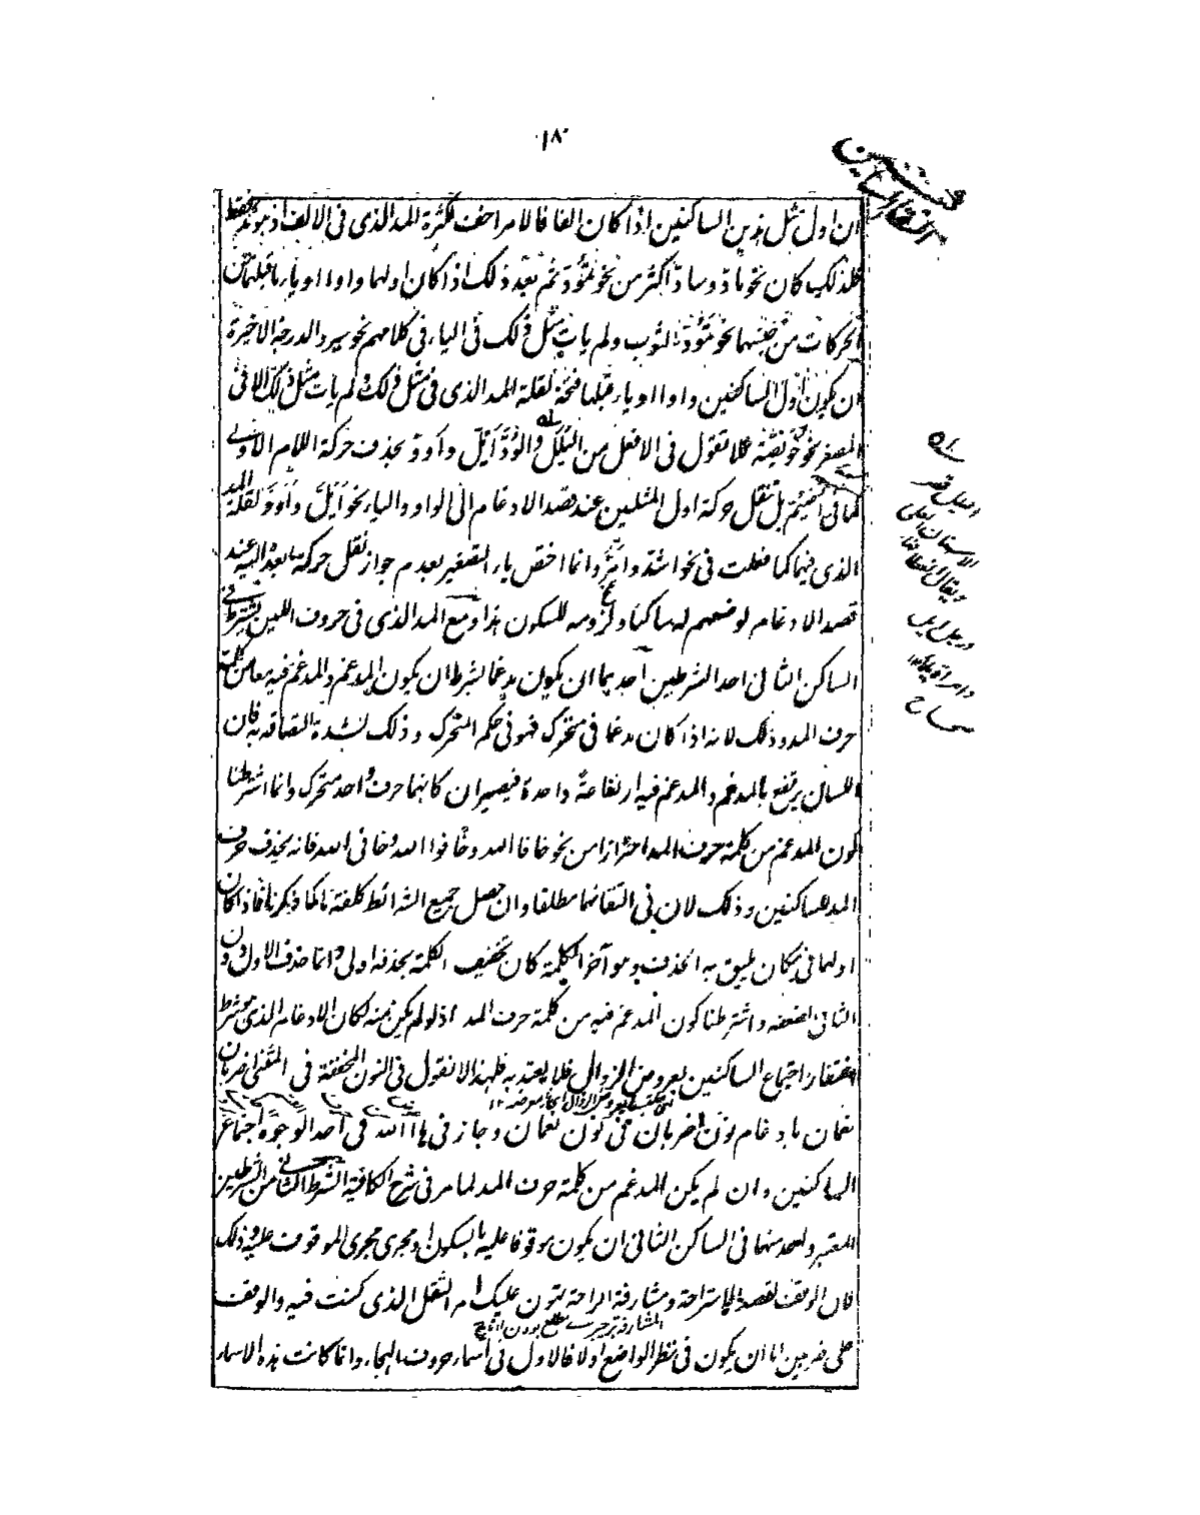 ١٨٠
التقاء الساكنين
ان اول مثل هذين الساكنين اذا كان الفا فالامر اخف لكثرة المد الذى فى الالف اذ هو مد فقط
فلذلك كان نحو مادّ وسادّ اكثر من نحو تمودّ ثم بعد ذلك اذا كان اولهما واوا او ياء ما قبلهما من
الحركات من جنسهما نحو تمودّ الثوب ولم يات مثل ذلك فى الياء فى كلامهم نحو سير والدرجة الاخيرة
ان يكون اول الساكنين واوا او ياء قبلها فتحة لقلة المد الذى فى مثل ذلك ولم يات مثل ذلك الا فى
المصغر نحو خويصّة فلا تقول فى الافعل من اليلل والودد ايلّ واودّ بحذف حركة اللام الاولى
كما فى اصيمّ بل تنقل حركة اول المثلين عند قصد الادغام الى الواو والياء نحو ايلّ واودّ لقلة المد
الذى فيهما كما فعلت فى نحو اشدّ وامرّ وانما اختص ياء التصغير بعدم جواز نقل حركة ما بعدها اليه عند
قصد الادغام لوضعهم له ساكنا ولزومه للسكون هذا ومع المد الذى فى حروف اللين يشترط فى
الساكن الثانى احد الشرطين احدهما ان يكون مدغما بشرط ان يكون المدغم والمدغم فيه معا من كلمة
حرف المد وذلك لانه اذا كان مدغما فى متحرك فهو فى حكم المتحرك وذلك لشدة التصاقه به فان
اللسان يرتفع بالمدغم والمدغم فيه ارتفاعة واحدة فيصيران كانهما حرف واحد متحرك وانما اشترطنا
كون المدغم من كلمة حرف المد احترازا من نحو خافا الله وخافوا الله وخافى الله فانه يحذف حرف
المد للساكنين وذلك لان فى التقائهما مطلقا وان حصل جميع الشرائط كلفة ما كما ذكرنا فاذا كان
اولهما فى مكان يليق به الحذف وهو آخر الكلمة كان تخفيف الكلمة بحذفه اولى وانما حذف الاول دون
الثانى لضعفه واشترطنا كون المدغم فيه من كلمة حرف المد اذ لو لم يكن منه لكان الادغام الذى هو شرط
اغتفار اجتماع الساكنين بعروض الزوال فلا يعتد به فلهذا لا نقول فى النون المخففة فى المثنى اضربان
نعمان بادغام نون اضربان فى نون نعمان وجاز فى ها الله فى احد الوجوه اجتماع
الساكنين وان لم يكن المدغم من كلمة حرف المد لما مر فى شرح الكافية الشرط الثانى من الشرطين
المعتبر واحد منهما فى الساكن الثانى ان يكون موقوفا عليه بالسكون او مجرى مجرى الموقوف عليه وذلك
لان الوقف لقصد الاستراحة ومشارفة الراحة تهون عليك امر الثقل الذى كنت فيه والوقف
على ضربين اما ان يكون فى نظر الواضع اولا فالاول فى اسماء حروف الهجاء وانما كانت هذه الاسماء
اليلل قصر
الاسنان العلى
ورجل ايل
وامراة يلاء
صحاح